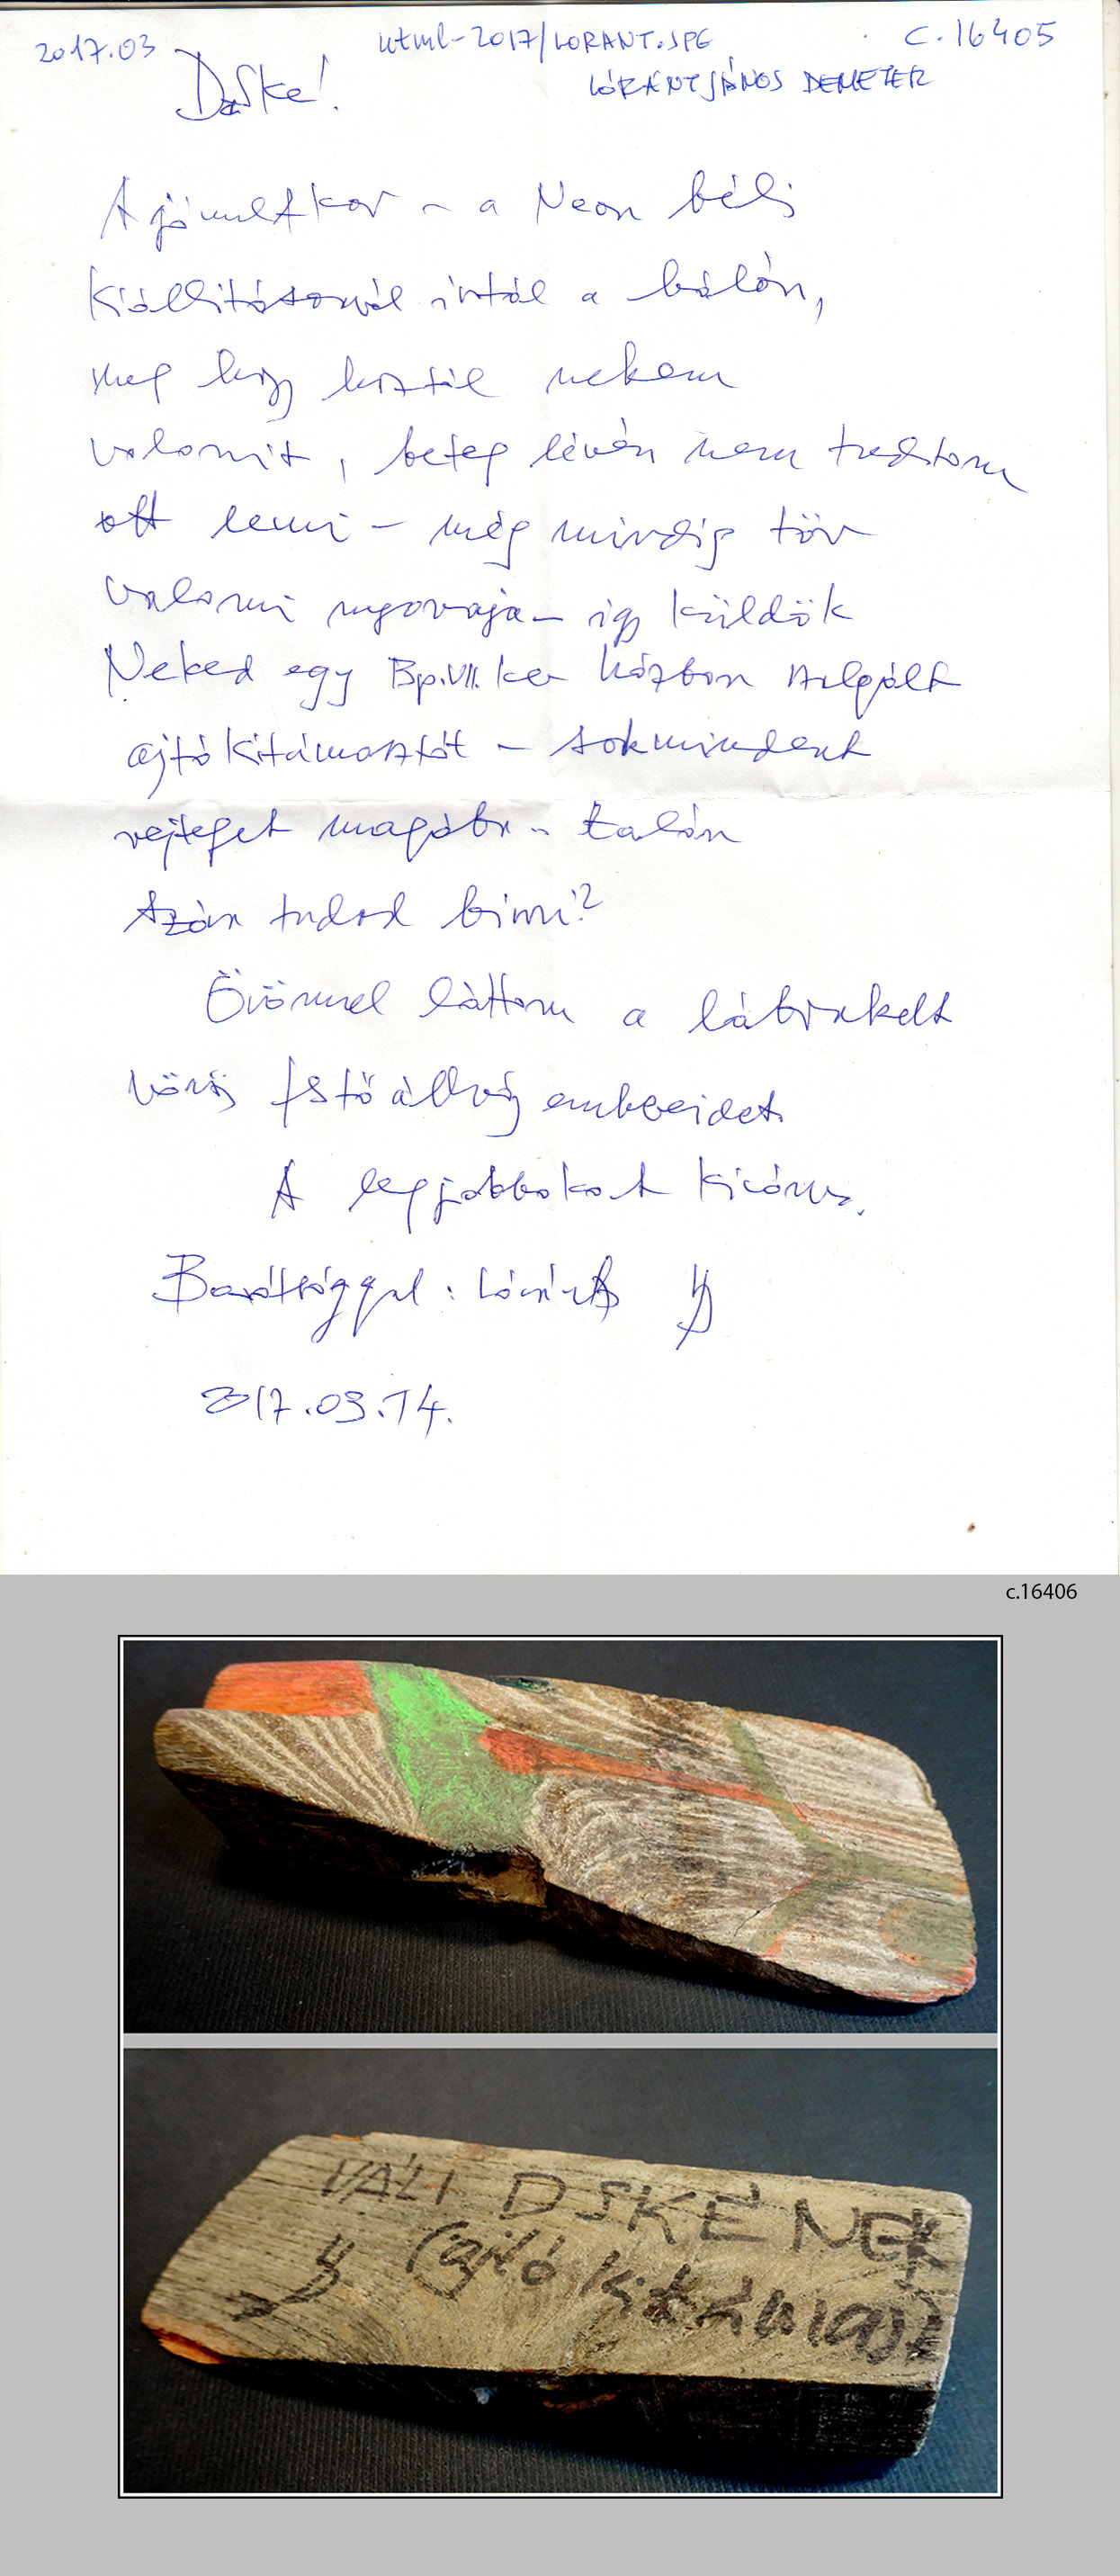 2017.03 html-2017/LORANT.JPG c.16405
LÓRÁNT JÁNOS DEMETER
DSke!
A jómultkor - a Neon béli
kiállitásomról irtál a hálón,
meg hogy hoztál nekem
valamit, beteg lévén nem tudtam
ott lenni - még mindig tör
valami nyavaja - igy küldök
Neked egy Bp.VII.ker házban szolgált
ajtókitámasztót - sokmindent
rejteget magába - talán
szán tudod birni?
Örömmel láttam a lábrakelt
vörös festőállvány embereidet.
A legjobbakat kivánva.
Barátsággal: Lóránt
2017.03.14.
c.16406
VÁLI DSKÉNEK
(ajtó kitámaszt